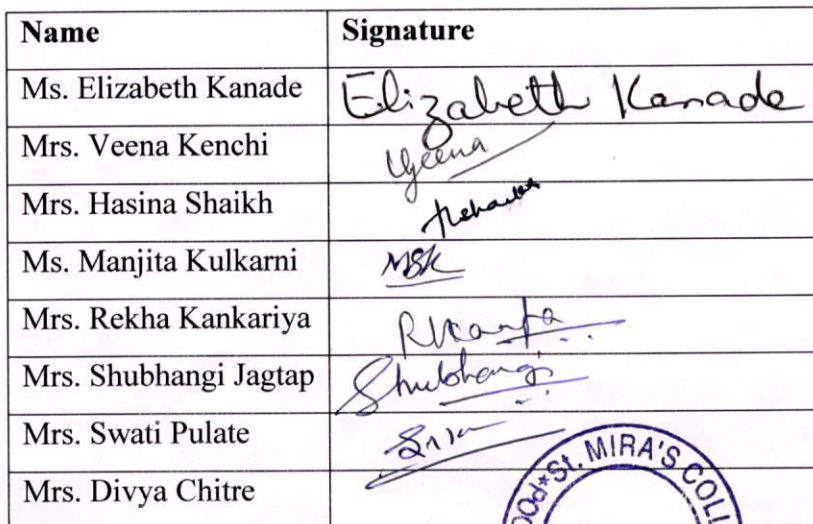 Name Signature
Ms. Elizabeth Kanade Elizabeth Kanade
Mrs. Veena Kenchi Veena
Mrs. Hasina Shaikh
Ms. Manjita Kulkarni MSK
Mrs. Rekha Kankariya
Mrs. Shubhangi Jagtap Shubhangi
Mrs. Swati Pulate
St. MIRA'S COLL
Mrs. Divya Chitre